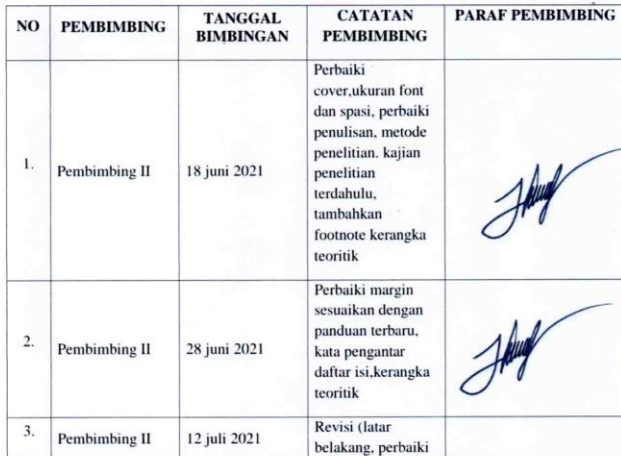 NO PEMBIMBING TANGGAL BIMBINGAN CATATAN PEMBIMBING PARAF PEMBIMBING
1. Pembimbing II 18 juni 2021
Perbaiki
cover,ukuran font
dan spasi, perbaiki
penulisan, metode
penelitian. kajian
penelitian
terdahulu,
tambahkan
footnote kerangka
teoritik
2. Pembimbing II 28 juni 2021
Perbaiki margin
sesuaikan dengan
panduan terbaru,
kata pengantar
daftar isi,kerangka
teoritik
3. Pembimbing II 12 juli 2021
Revisi (latar
belakang, perbaiki